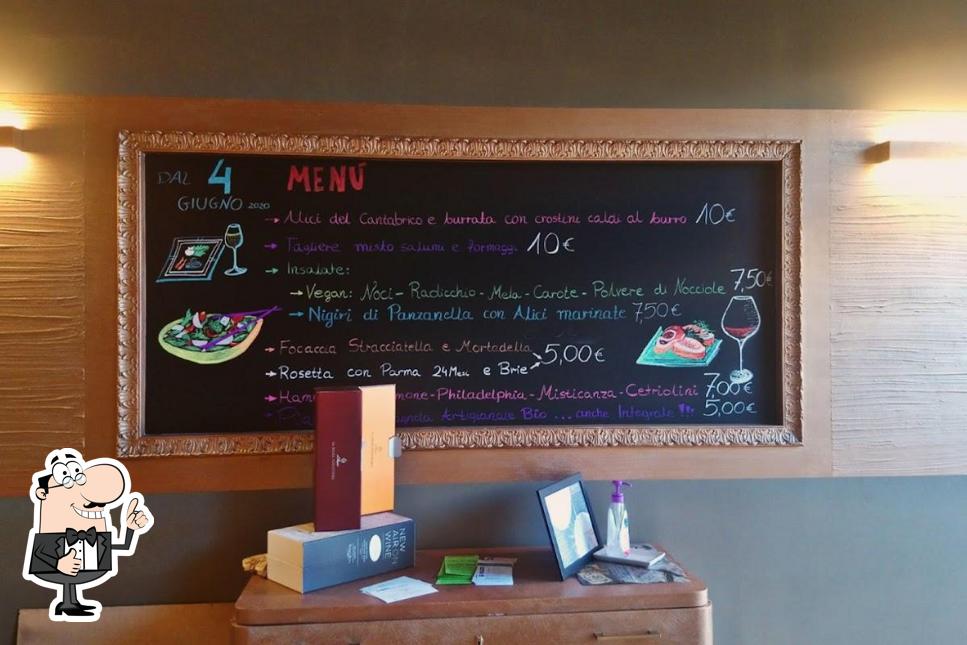 DAL 4
GIUGNO 2020
MENÚ
→ Alici del Cantabrico e burrata con crostini caldi al burro 10€
→ Tagliere misto salumi e formaggi 10€
→ Insalate:
→ Vegan: Noci - Radicchio - Mela - Carote - Polvere di Nocciole 7,50€
→ Nigiri di Panzanella con Alici marinate 7,50€
→ Focaccia Stracciatella e Mortadella
→ Rosetta con Parma 24 Mesi e Brie 5,00€
→ Ham mone - Philadelphia - Misticanza - Cetriolini 7,00€
Artigianale Bio ... anche Integrale !!! 5,00€
NEW
AIR ON
WINE